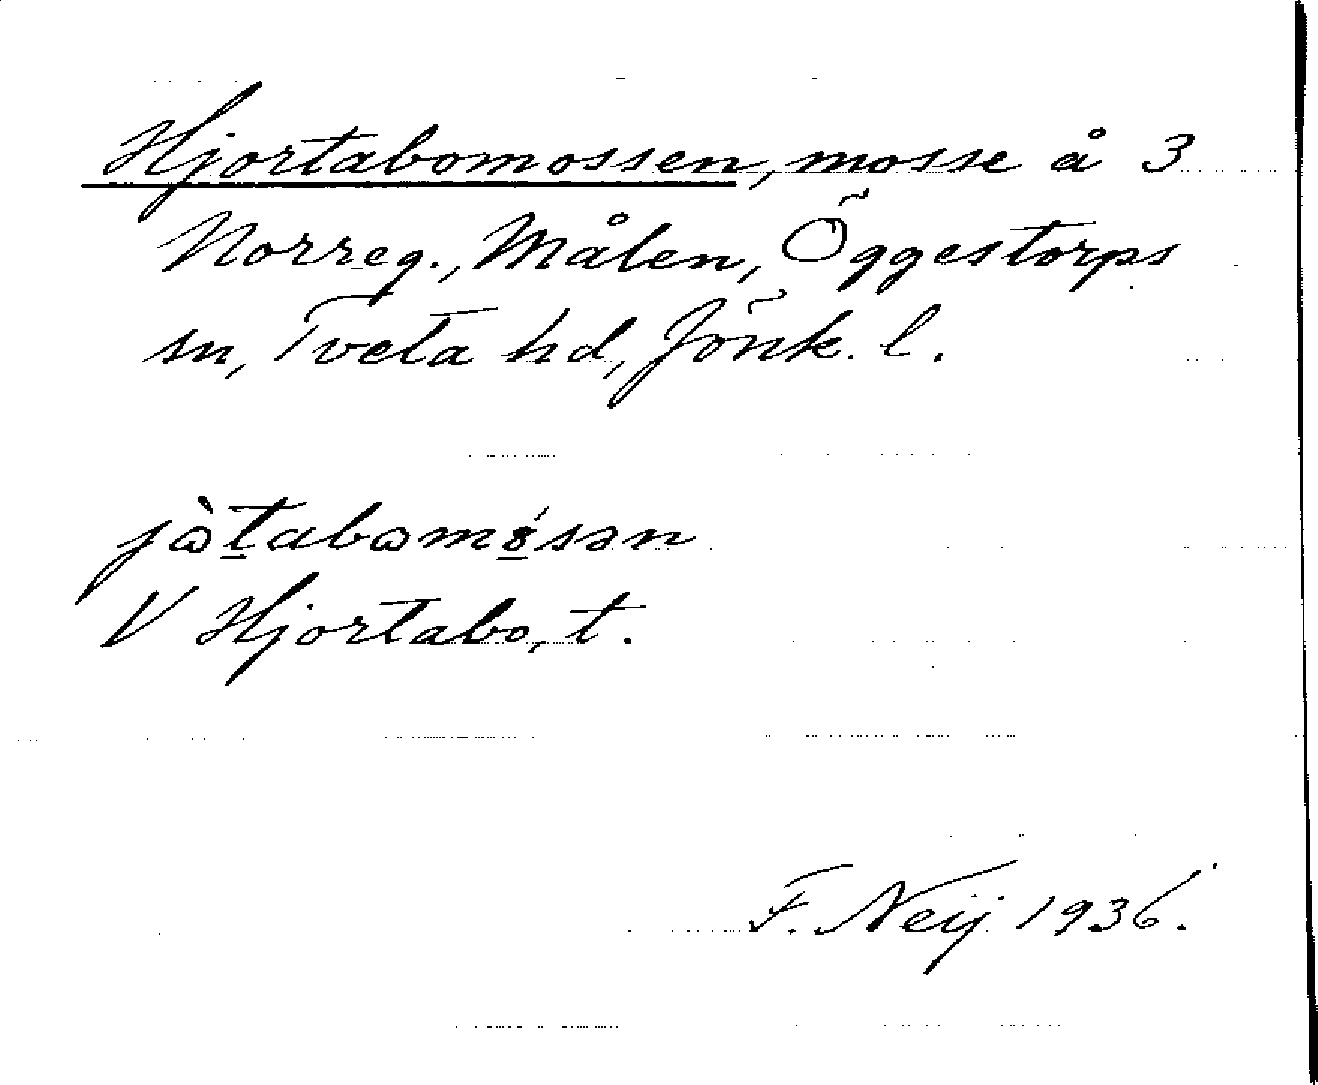 Hjortabomossen, mosse å 3
Norreg., Målen, Öggestorps
sn, Tveta hd, Jönk. l.
jὼtabωmǿsən
V Hjortabo, t.
F. Neij 1936.